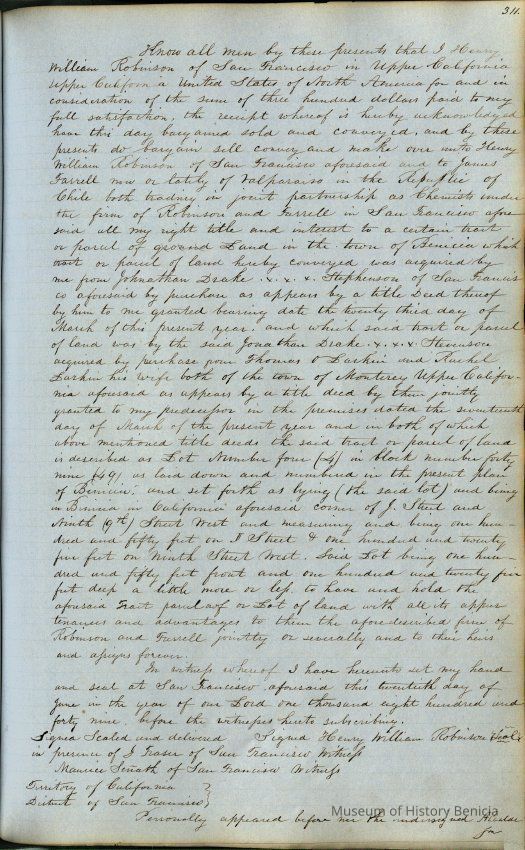 311.
Know all men by these presents that I Henry
William Robinson of San Francisco in Upper California
Upper California United States of North America for and in
consideration of the sum of three hundred dollars paid to my
full satisfaction, the receipt whereof is hereby acknowledged
have this day bargained sold and conveyed, and by these
presents do bargain sell convey and make over unto Henry
William Robinson of San Francisco aforesaid and to James
Farrell now or lately of Valparaiso in the Republic of
Chile both trading in joint partnership as Chemists under
the firm of Robinson and Farrell in San Francisco afore
said all my right title and interest to a certain tract
or parcel of ground Land in the town of Benicia which
tract or parcel of land hereby conveyed was acquired by
me from Johnathan Drake .x. x. x. Stephenson of San Francis
co aforesaid by purchase as appears by a title Deed thereof
by him to me granted bearing date the twenty third day of
March of this present year. and which said tract or parcel
of land was by the said Jonathan Drake .x. x. x. Stevenson
acquired by purchase from Thomas O Larkin and Rachel
Larkin his wife both of the town of Monterey Upper Califor-
nia aforesaid as appears by a title deed by them jointly
granted to my predecessor in the premises dated the seventeenth
day of March of the present year and in both of which
above mentioned title deeds the said tract or parcel of land
is described as Lot Number four (4) in block number forty
nine (49) as laid down and numbered in the present plan
of Benicia, and set forth as lying (the said lot) and being
in Benicia in California aforesaid corner of J. Street and
Ninth (9th) Street West and measuring and being one hun-
dred and fifty feet on J Street & one hundred and twenty
five feet on Ninth Street West. Said Lot being one hun-
dred and fifty feet front and one hundred and twenty five
feet deep a little more or less, to have and hold the
aforesaid Tract parcel of or Lot of land with all its appur
tenances and advantages to them the afore described firm of
Robinson and Farrell jointly or severally and to their heirs
and assigns forever.
In witness whereof I have hereunto set my hand
and seal at San Francisco aforesaid this twentieth day of
June in the year of our Lord one thousand eight hundred and
forty nine. before the witnesses hereto subscribing.
Signed Sealed and delivered Signed Henry William Robinson Seal
in presence of J Fraser of San Francisco Witness
Maurice of San Francisco Witness
Territory of California }
District of San Francisco }
Personally appeared before me the undersigned Alcalde
for
Museum of History Benicia